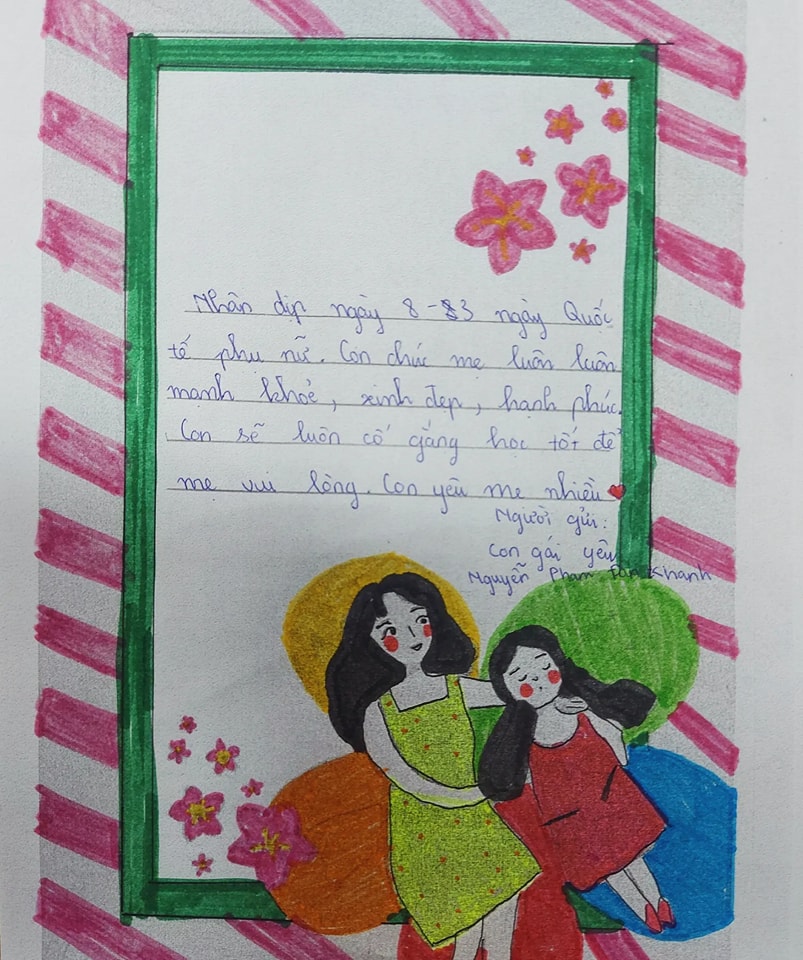 Nhân dịp ngày 8-3 ngày Quốc
tế phụ nữ. Con chúc mẹ luôn luôn
mạnh khoẻ, xinh đẹp, hạnh phúc.
Con sẽ luôn cố gắng học tốt để
mẹ vui lòng. Con yêu mẹ nhiều
Người gửi:
Con gái yêu
Nguyễn Phạm Khanh